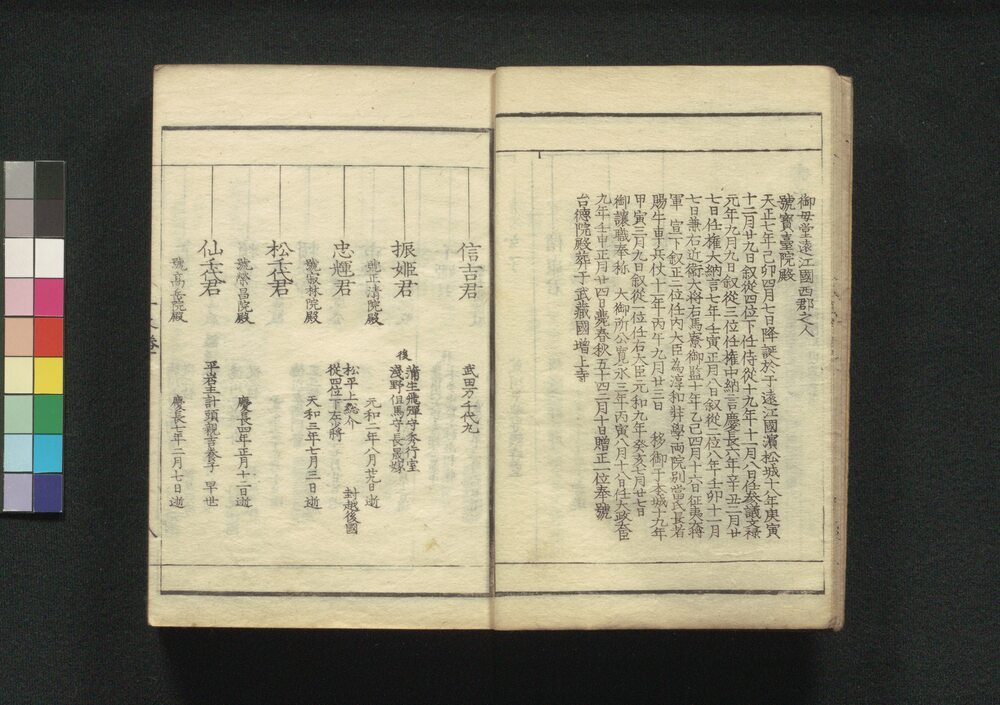 御母堂遠江國西郡之人
號寶臺院殿
天正七年己卯四月七日降誕於于遠江國濱松城十八年庚寅
十二月廿九日叙從四位下任侍從十九年十一月八日任參議文祿
元年九月九日叙從三位任權中納言慶長六年辛丑三月廿
七日任權大納言七年壬寅正月八日叙從二位八年癸卯十一月
七日兼右近衛大將右馬寮御監十年乙巳四月十六日征夷大將
軍 宣下叙正二位任内大臣為淳和弉學両院別當氏長者
賜牛車兵杖十一年丙午九月廿三日 移御于本城十九年
甲寅三月九日叙從一位任右大臣元和九年癸亥七月廿七日
御讓職奉称 大御所公寛永三年丙寅八月十八日任大政大臣
九年壬申正月廿四日薨春秋五十四二月十日贈正一位奉號
台德院殿葬于武藏國增上寺
信吉君
武田万千代丸
振姬君
後
蒲生飛驒守秀行室
淺野但馬守長晟嫁
號正清院殿
元和二年八月廿九日逝
忠輝君
松平上総介
從四位下左少將
封越後國
號寂林院殿
天和三年七月三日逝
松千代君
號榮昌院殿
慶長四年正月十二日逝
仙千代君
平岩主計頭親吉養子 早世
號高岳院殿
慶長七年二月七日逝